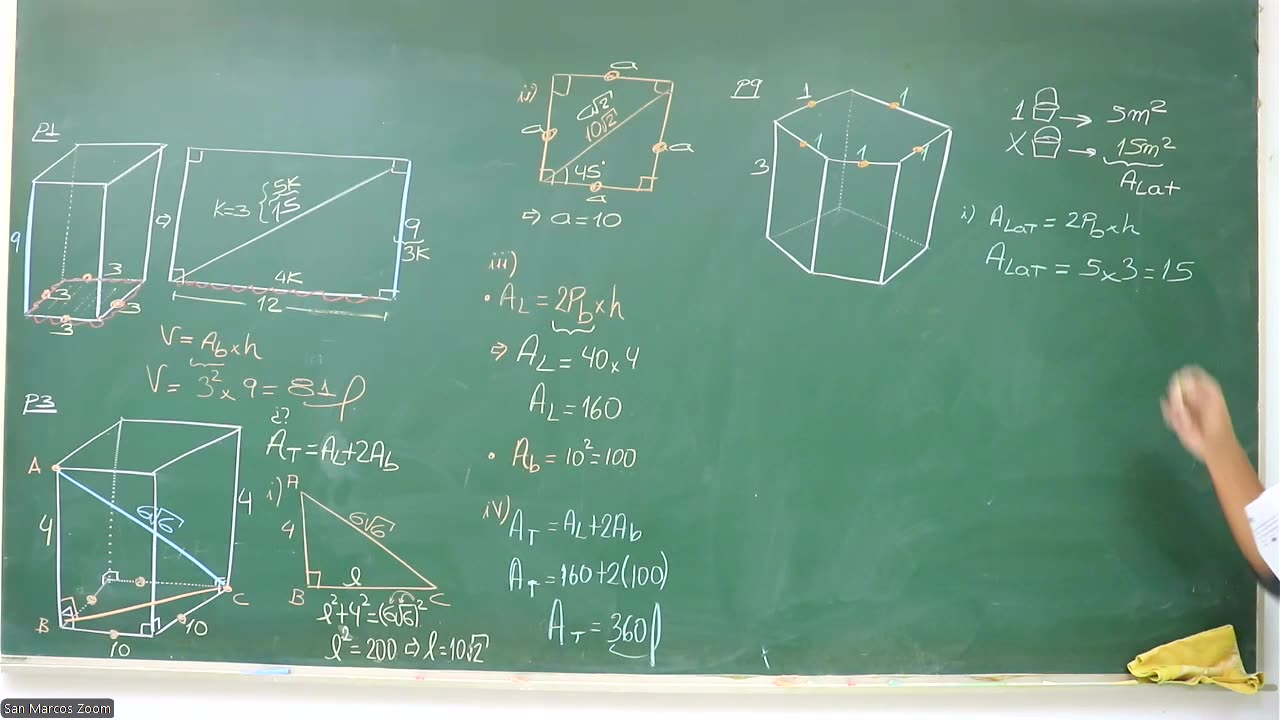 P1
9
3
3
3
3
K=3 { 5K
15
4K
12
9
3K
V = Ab x h
V = 3² x 9 = 81
P3
A
4
6√6
4
B
C
10
10
¿?
A_T = A_L + 2A_b
i) A
4
6√6
l
B
C
l² + 4² = (6√6)²
l² = 200 ⇨ l = 10√2
ii)
a
a
a√2
10√2
a
45°
a
⇨ a = 10
iii)
• A_L = 2P_b x h
⇨ A_L = 40 x 4
A_L = 160
• A_b = 10² = 100
iv) A_T = A_L + 2A_b
A_T = 160 + 2(100)
A_T = 360
P9
1
1
1
1
1
3
1 → 5m²
X → 15m²
A_Lat
i) A_LaT = 2P_b x h
A_Lat = 5 x 3 = 15
San Marcos Zoom